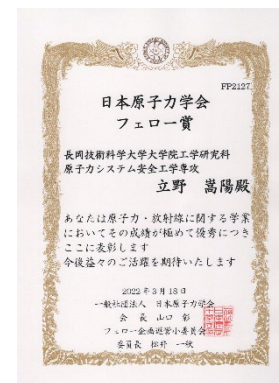 FP2127
日本原子力学会
フェロー賞
長岡技術科学大学大学院工学研究科
原子力システム安全工学専攻
立野 嵩陽殿
あなたは原子力・放射線に関する学業
においてその成績が極めて優秀につき
ここに表彰します
今後益々のご活躍を期待いたします
2022年3月18日
一般社団法人 日本原子力学会
会長 山口 彰
フェロー企画運営小委員会
委員長 松井 一秋